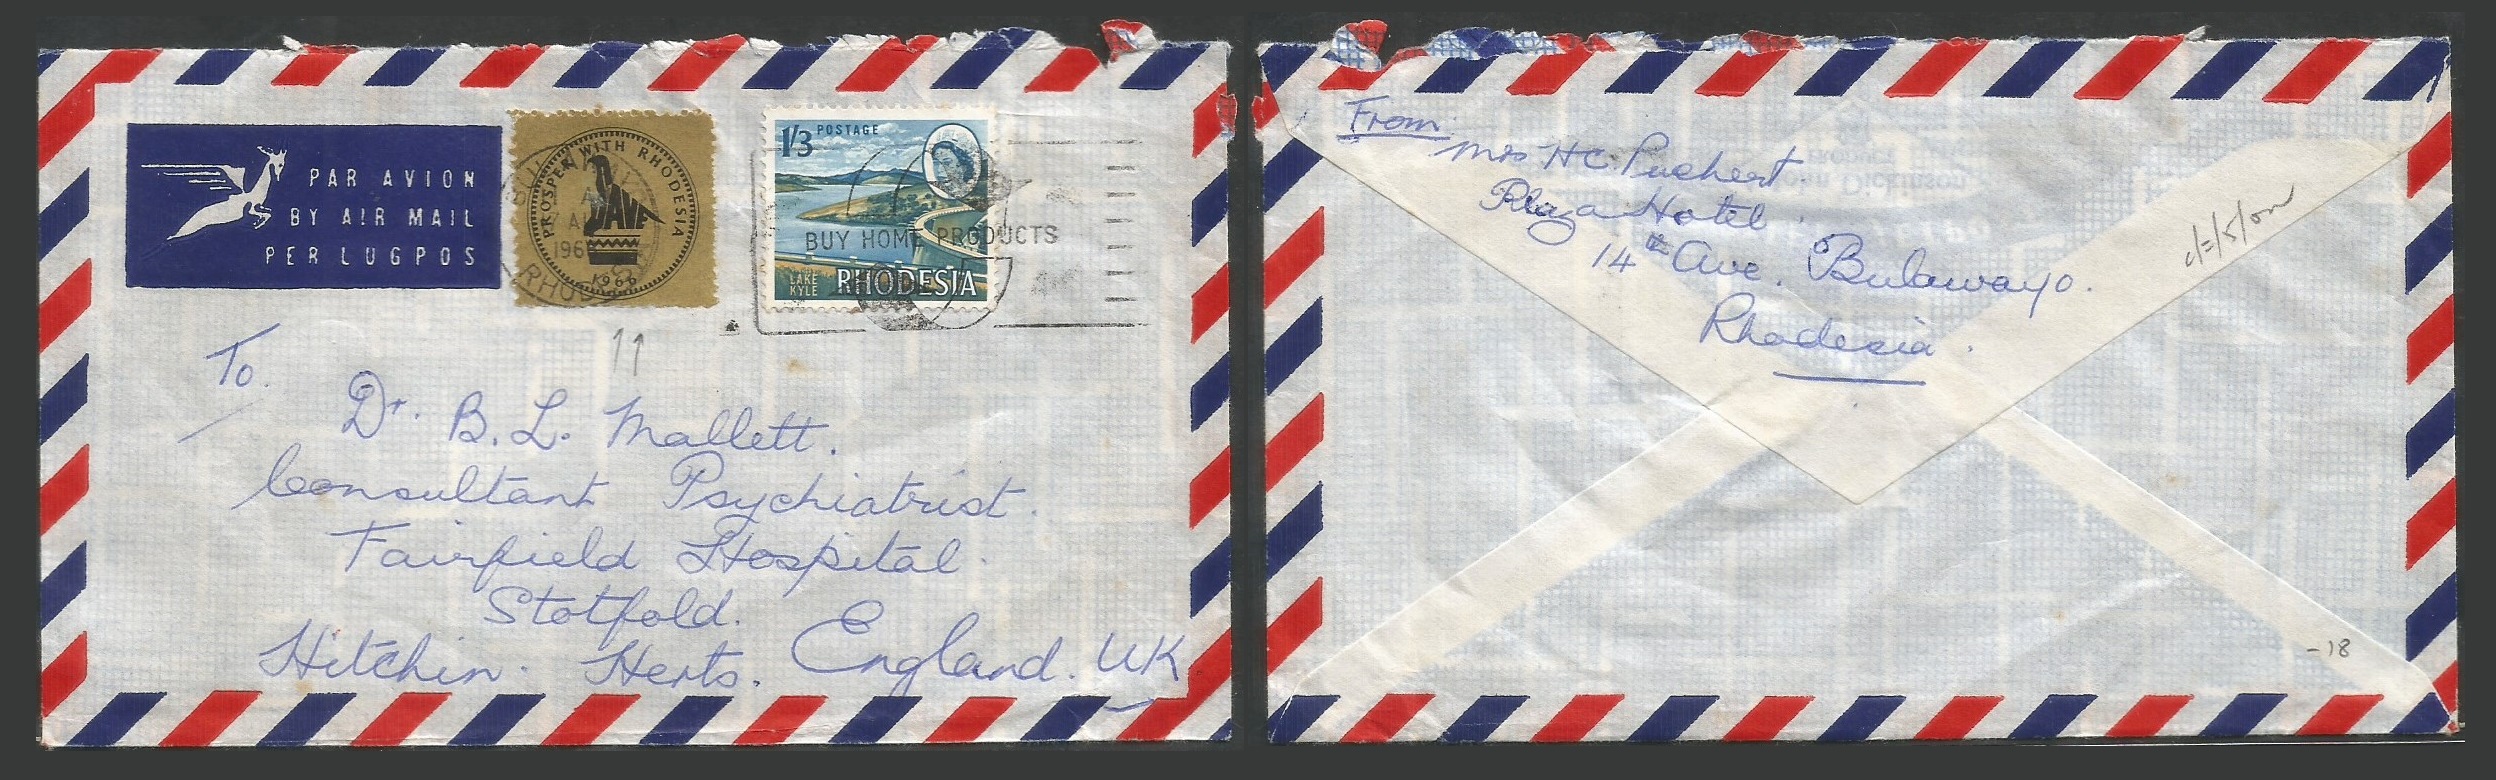 PAR AVION
BY AIR MAIL
PER LUGPOS
PROSPER WITH RHODESIA
SAVE
1966
RHOD
1/3 POSTAGE
LAKE
KYLE
RHODESIA
BUY HOME PRODUCTS
To.
Dr. B. L. Mallett.
Consultant Psychiatrist.
Fairfield Hospital.
Stotfold.
Hitchin. Herts. England. UK
From
Mrs H C.
Plaza Hotel.
14th Ave. Bulawayo.
Rhodesia.
John Dickinson
-18